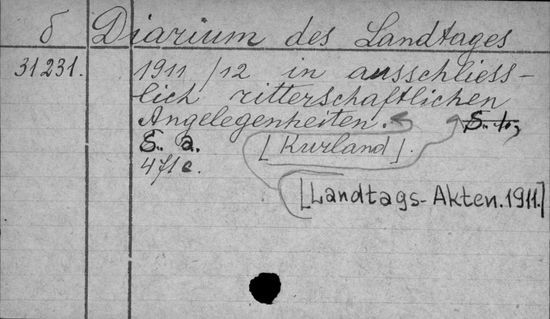 б Diarium des Landtages
31231. 1911/12 in ausschliess-
lich ritterschaftlichen
Angelegenheiten. S. l.,
S. a. [Kurland].
471 c.
[Landtags-Akten.1911.]